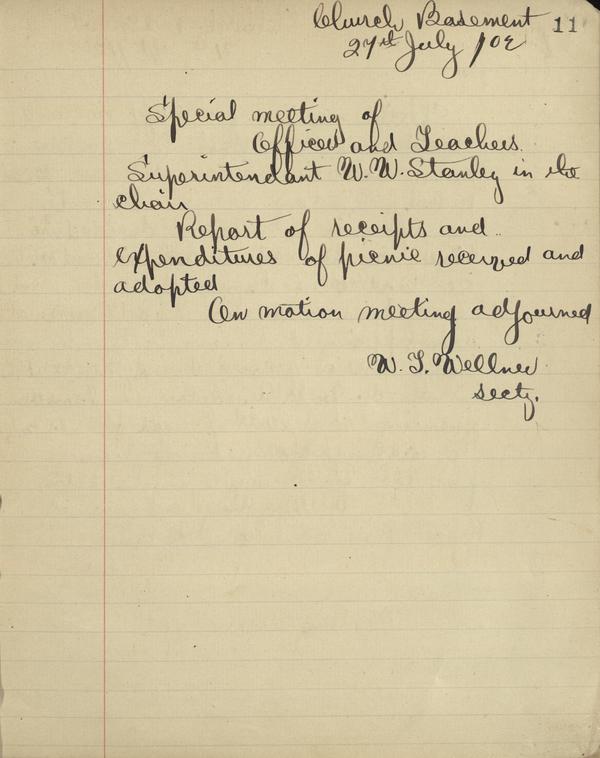 Church Basement 11
27th July /02
Special meeting of
Officers and Teachers.
Superintendant W. W. Stanley in the
chair
Report of receipts and
expenditures of picnic received and
adopted
On motion meeting adjourned
W. T. Wellner
secty.